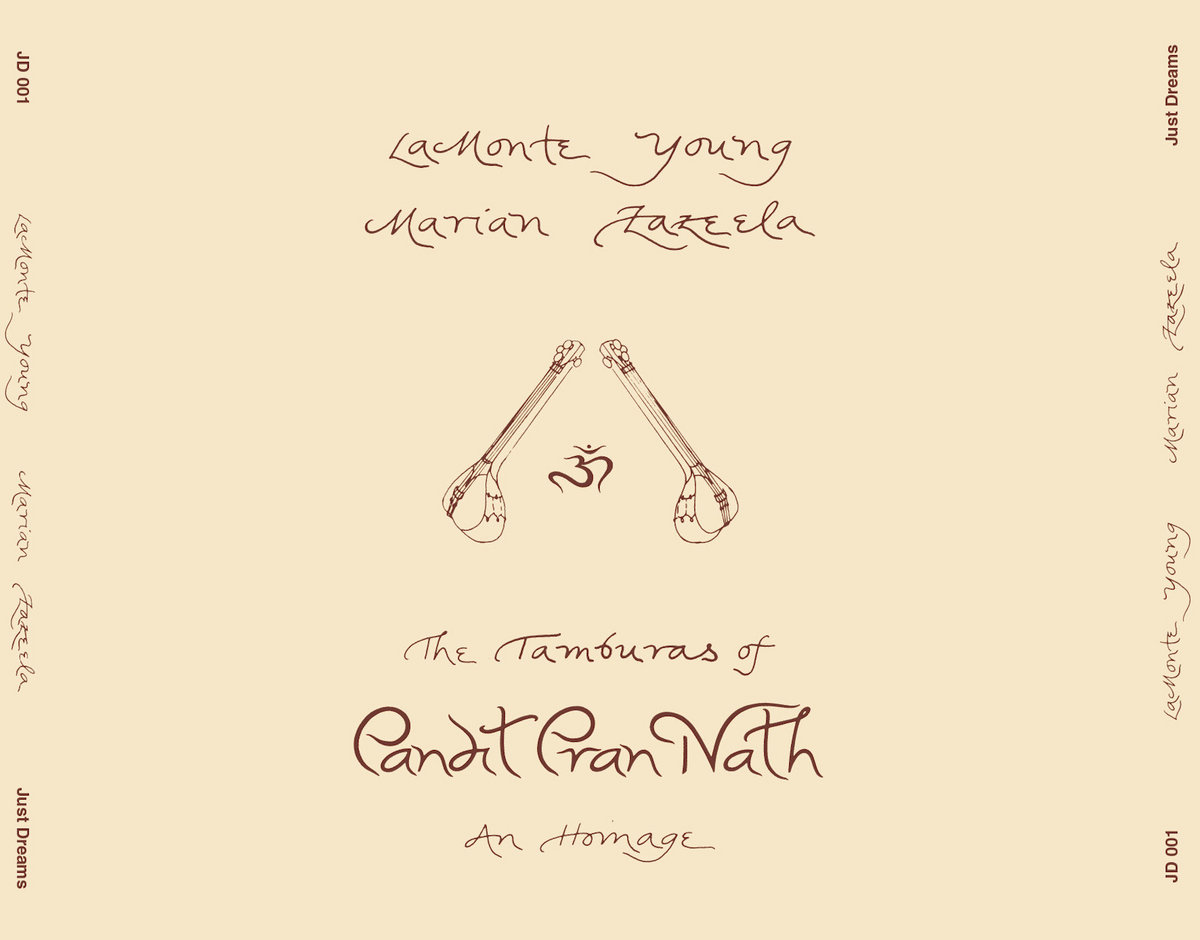 JD 001
LaMonte Young
Marian Zazeela
Just Dreams
LaMonte Young
Marian Zazeela
ॐ
The Tamburas of
Pandit Pran Nath
An Homage
Just Dreams
Marian Zazeela
LaMonte Young
JD 001